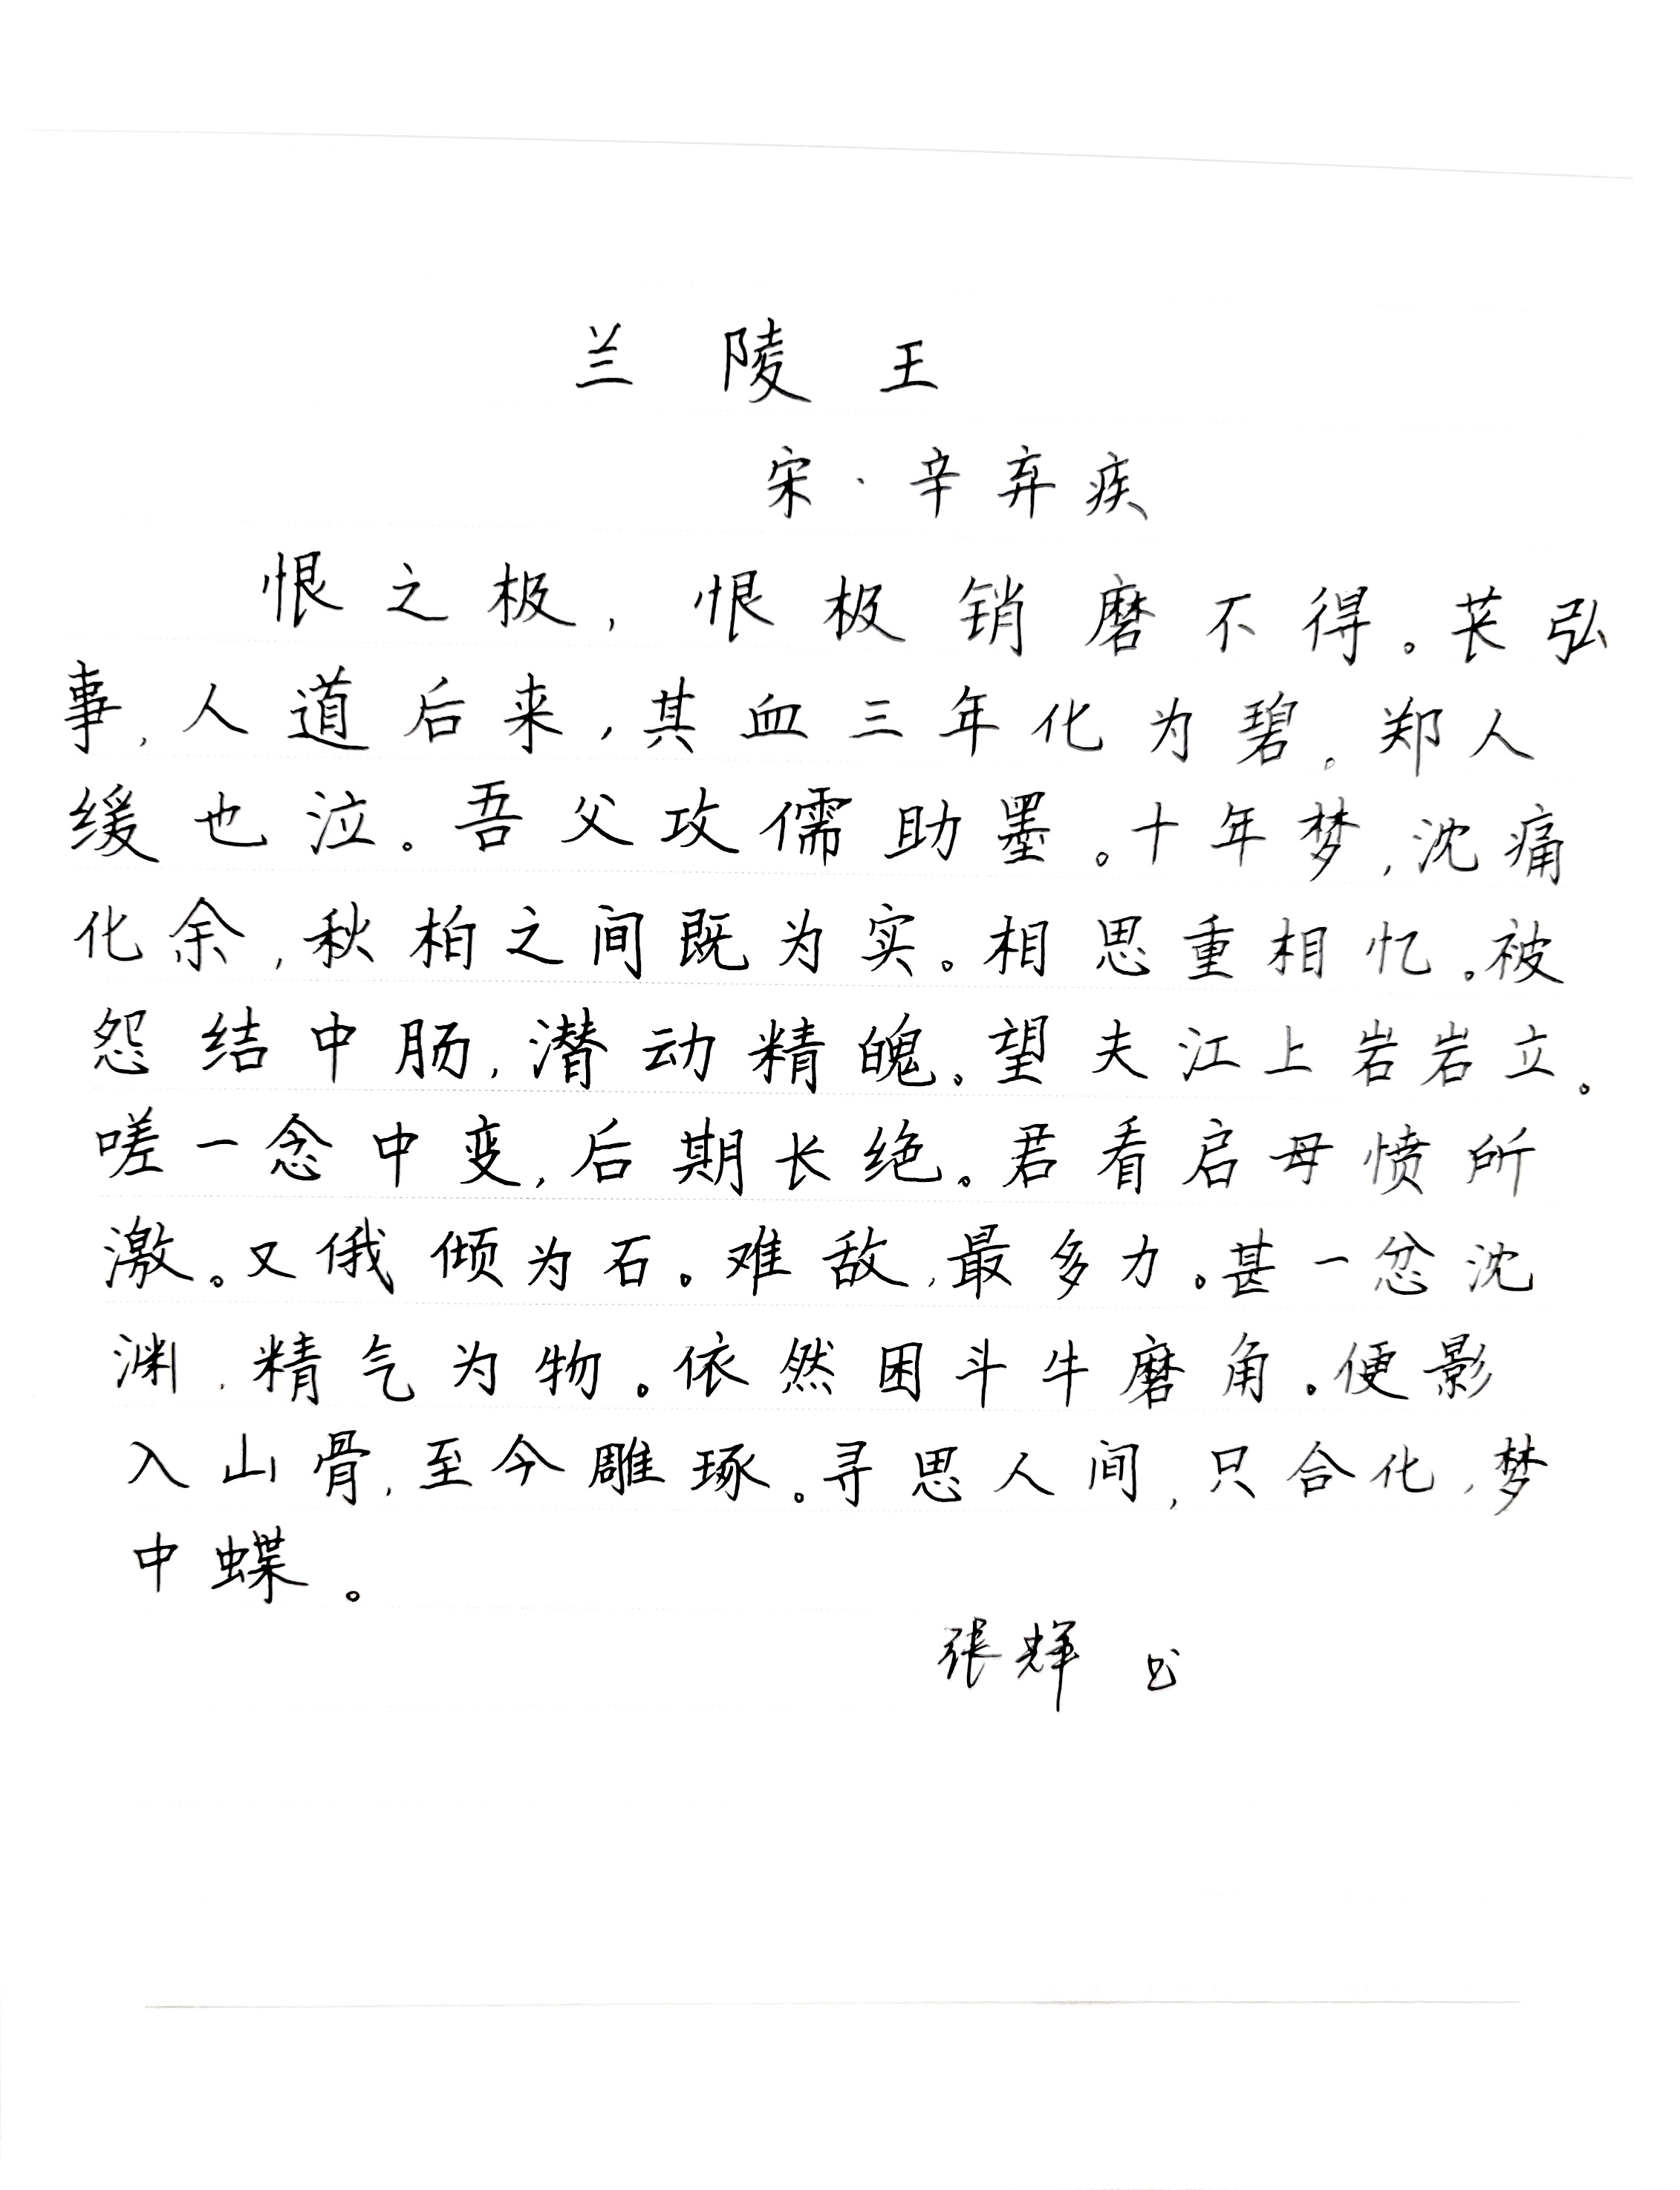 兰陵王
宋·辛弃疾
恨之极，恨极销磨不得。苌弘
事，人道后来，其血三年化为碧。郑人
缓也泣。吾父攻儒助墨。十年梦，沈痛
化余，秋柏之间既为实。相思重相忆。被
怨结中肠，潜动精魄。望夫江上岩岩立。
嗟一念中变，后期长绝。君看启母愤所
激。又俄倾为石。难敌，最多力。甚一忿沈
渊，精气为物。依然困斗牛磨角。便影
入山骨，至今雕琢。寻思人间，只合化，梦
中蝶。
張辉 书